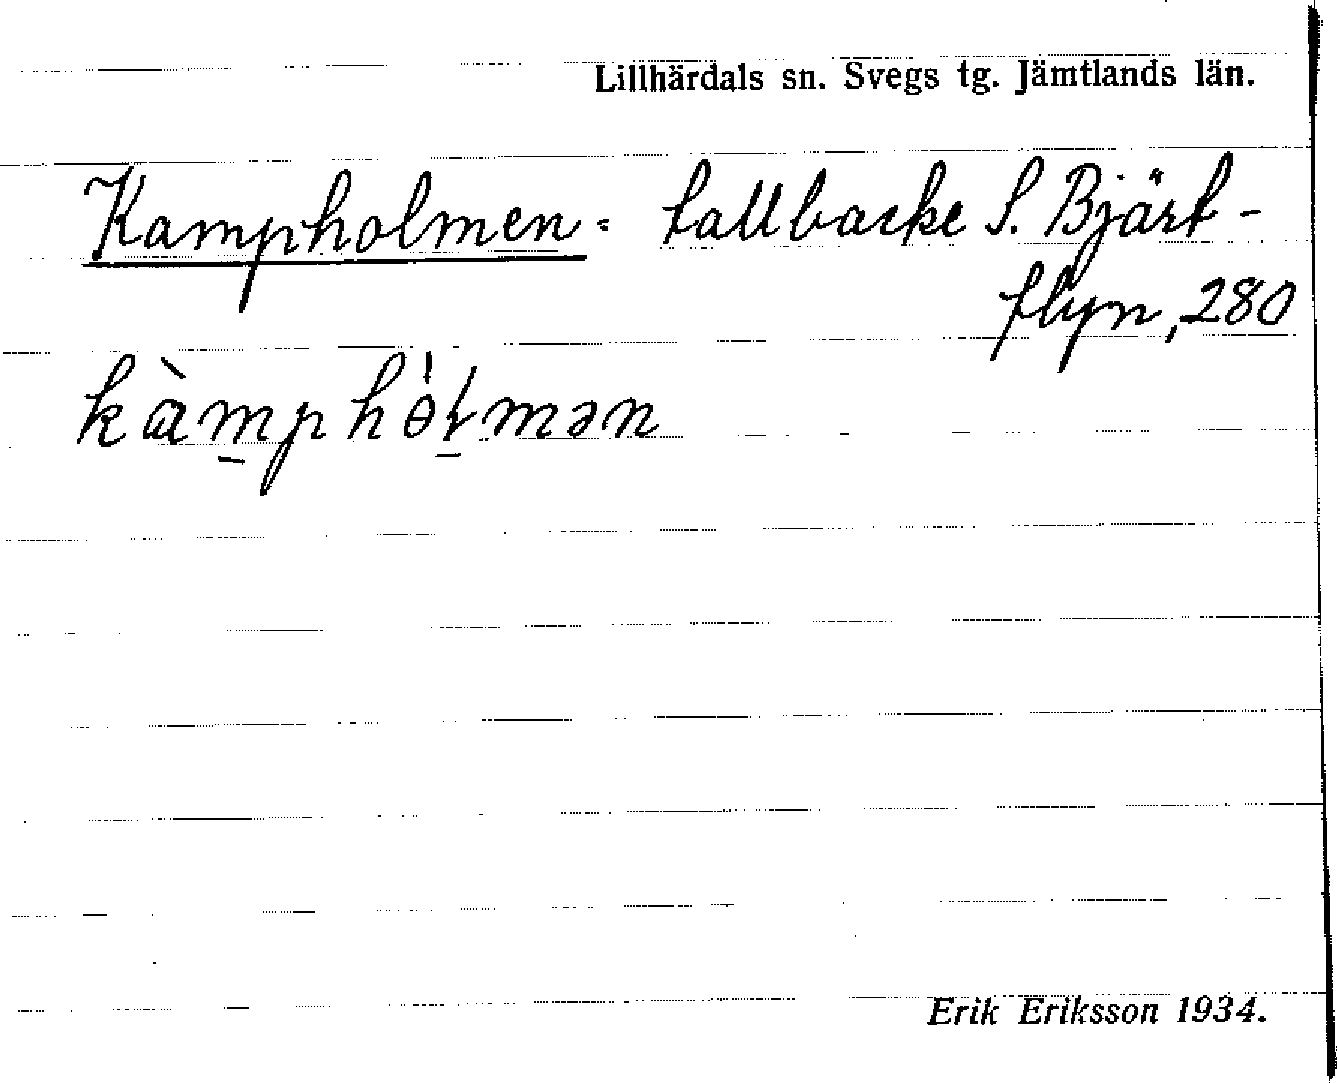 Lillhärdals sn. Svegs tg. Jämtlands län.
Kampholmen = tallbacke S. Bjärt-
flyn, 280
kàmphò̍ɫmən
Erik Eriksson 1934.